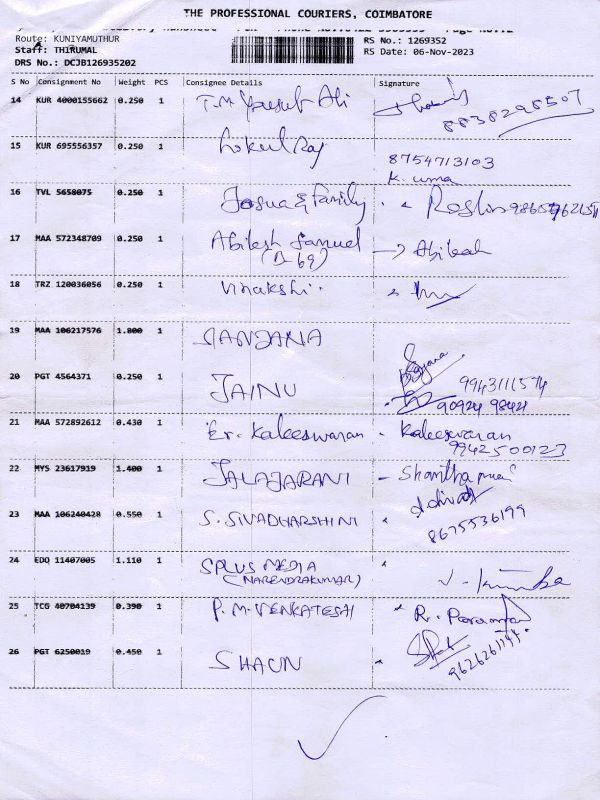 THE PROFESSIONAL COURIERS, COIMBATORE
Route: KUNIYAMUTHUR
RS No.: 1269352
Staff: THIRUMAL
RS Date: 06-Nov-2023
DRS No.: DCJB126935202
S No Consignment No Weight PCS Consignee Details Signature
14 KUR 4000155662 0.250 1 T.M Yousuf Ali
8838298507
15 KUR 695556357 0.250 1 Gokul Raj 8754713103
K. uma
16 TVL 5658075 0.250 1 Josua & Family Roslin
17 MAA 572348709 0.250 1 Abilesh Samuel
18 TRZ 120036056 0.250 1
19 MAA 106217576 1.800 1 SANJANA
20 PGT 4564371 0.250 1 JAINU
90924 98421
21 MAA 572892612 0.430 1 Er. Kaleeswaran - Kaleeswaran
9942500123
22 MYS 23617919 1.400 1 JALAJARANI
23 MAA 106240428 0.550 1 S. SIVADHARSHINI
8675536199
24 EDQ 11407005 1.110 1 SPLUS MEDIA
(NARENDRAKUMAR)
25 TCG 40704139 0.390 1 P.M. VENKATESAI
26 PGT 6250019 0.450 1 SHAUN